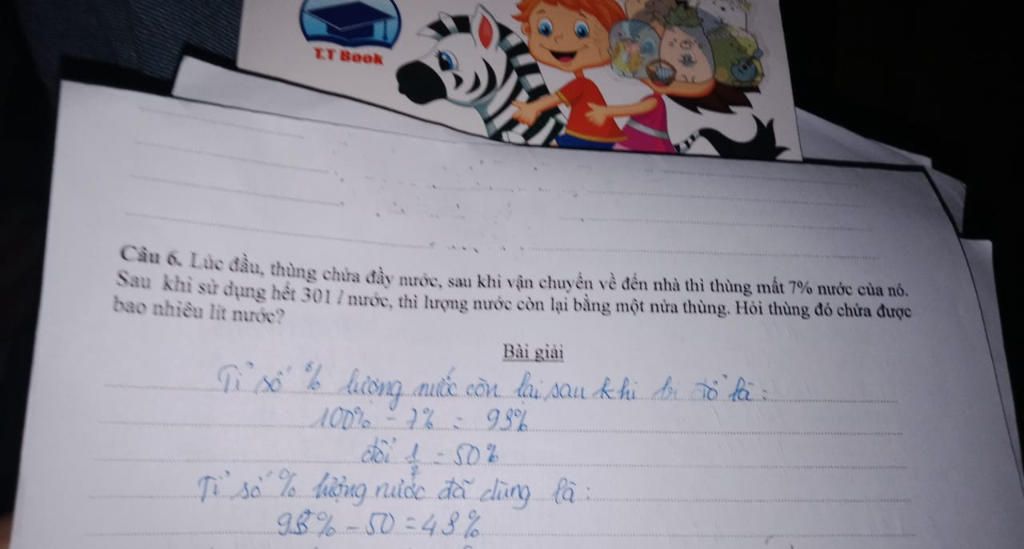 T.T Book
Câu 6. Lúc đầu, thùng chứa đầy nước, sau khi vận chuyển về đến nhà thì thùng mất 7% nước của nó.
Sau khi sử dụng hết 301 l nước, thì lượng nước còn lại bằng một nửa thùng. Hỏi thùng đó chứa được
bao nhiêu lít nước?
Bài giải
Tỉ số % lượng nước còn lại sau khi bị đổ là:
100% - 7% = 93%
đổi 1/2 = 50%
Tỉ số % lượng nước đã dùng là:
93% - 50 = 43%